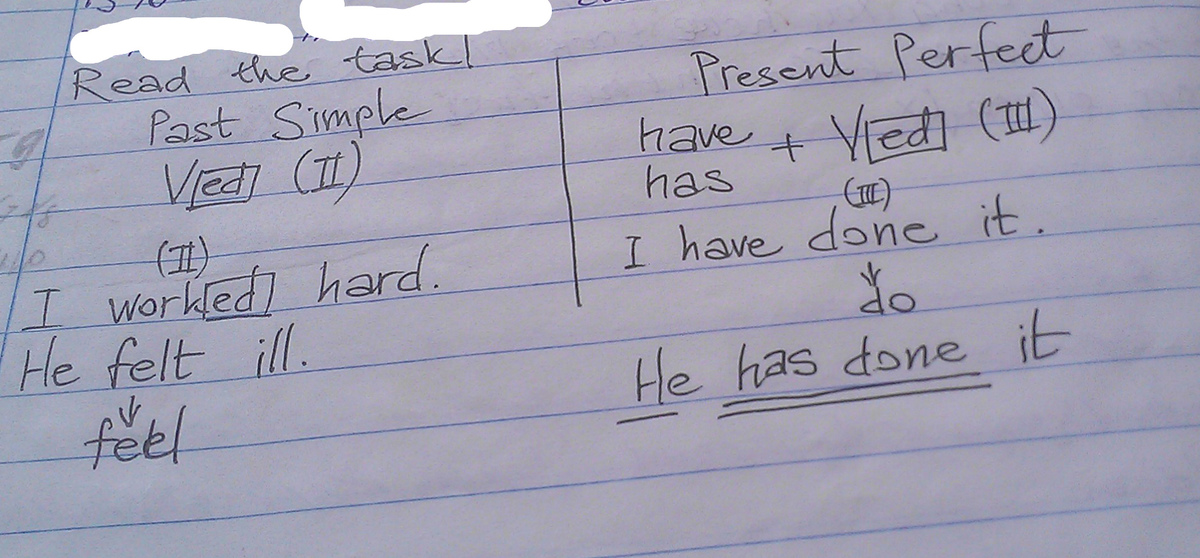 Read the task!
Past Simple
V[ed] (II)
(II)
I work[ed] hard.
He felt ill.
feel
Present Perfect
have + V[ed] (III)
has
(III)
I have done it.
do
He has done it